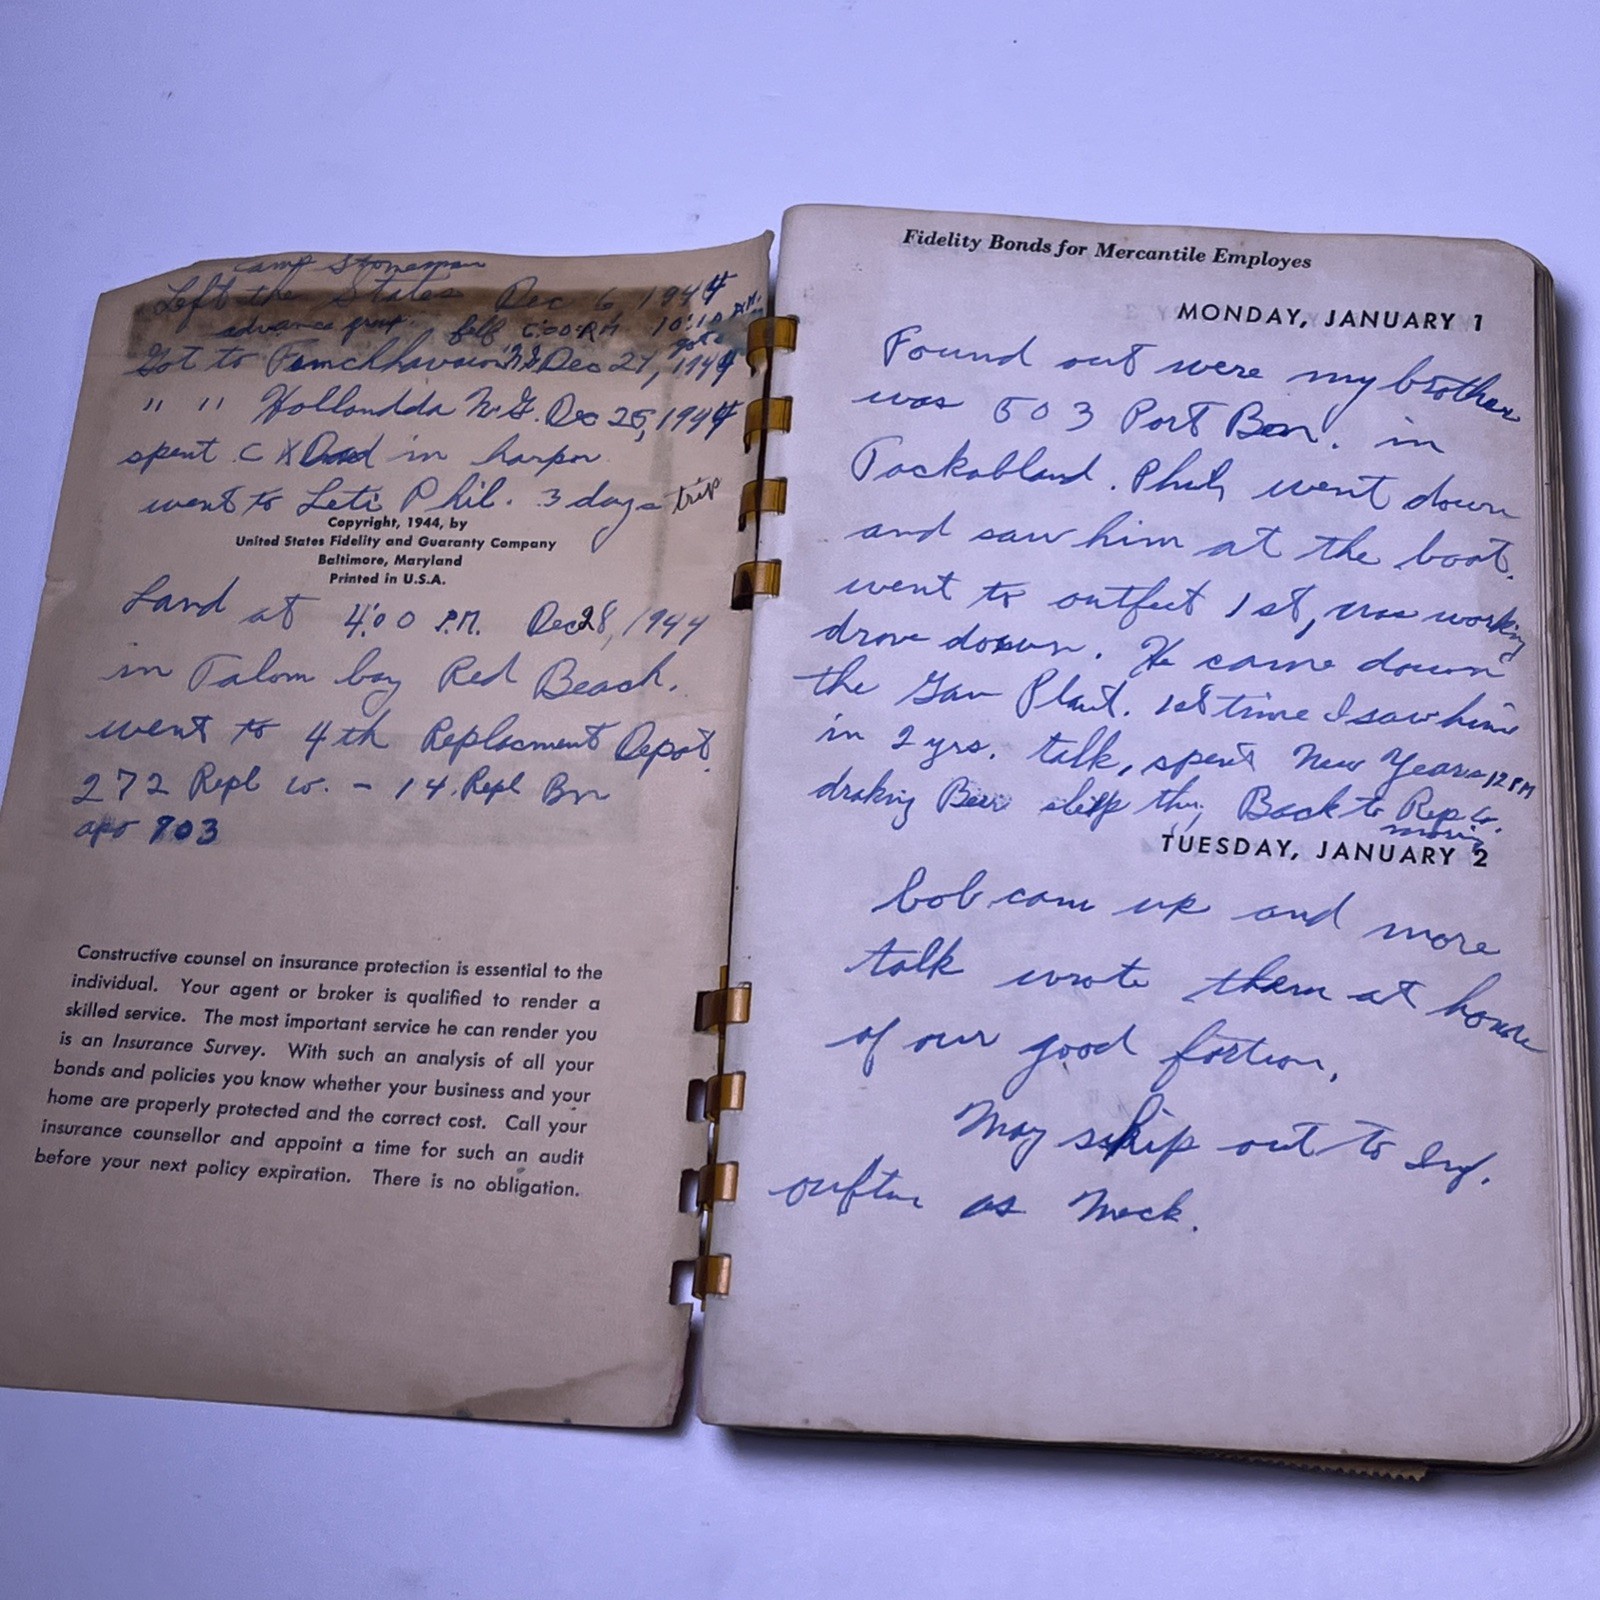 Camp Stoneman
Left the States Dec 6 1944
advance group. left 5:00 P.M. 10:10 P.M.
Got to Finchhaven N.G. Dec 21, 1944
" " Hollandda N.G. Dec 25, 1944
spent in harpor
went to Leti Phil. 3 days trip
Copyright, 1944, by
United States Fidelity and Guaranty Company
Baltimore, Maryland
Printed in U.S.A.
Land at 4:00 P.M. Dec 28, 1944
in Talom bay Red Beach.
went to 4th Replacment Depot.
272 Repl Co. - 14. Repl Bn
apo 703
Constructive counsel on insurance protection is essential to the
individual. Your agent or broker is qualified to render a
skilled service. The most important service he can render you
is an Insurance Survey. With such an analysis of all your
bonds and policies you know whether your business and your
home are properly protected and the correct cost. Call your
insurance counsellor and appoint a time for such an audit
before your next policy expiration. There is no obligation.
Fidelity Bonds for Mercantile Employes
MONDAY, JANUARY 1
Found out were my brother
was 503 Port Bn. in
Tackabland. Phil, went down
and saw him at the boat.
went to outfect 1st, was working
drove down. He came down
the Gav Plant. 1st time I saw him
in 2 yrs. talk, spent New Years 12 PM
draking Beer sleip Back to Rep Co.
TUESDAY, JANUARY 2
bob cam up and more
talk wrote them at home
of our good fortion,
May ship out to
as Meck.